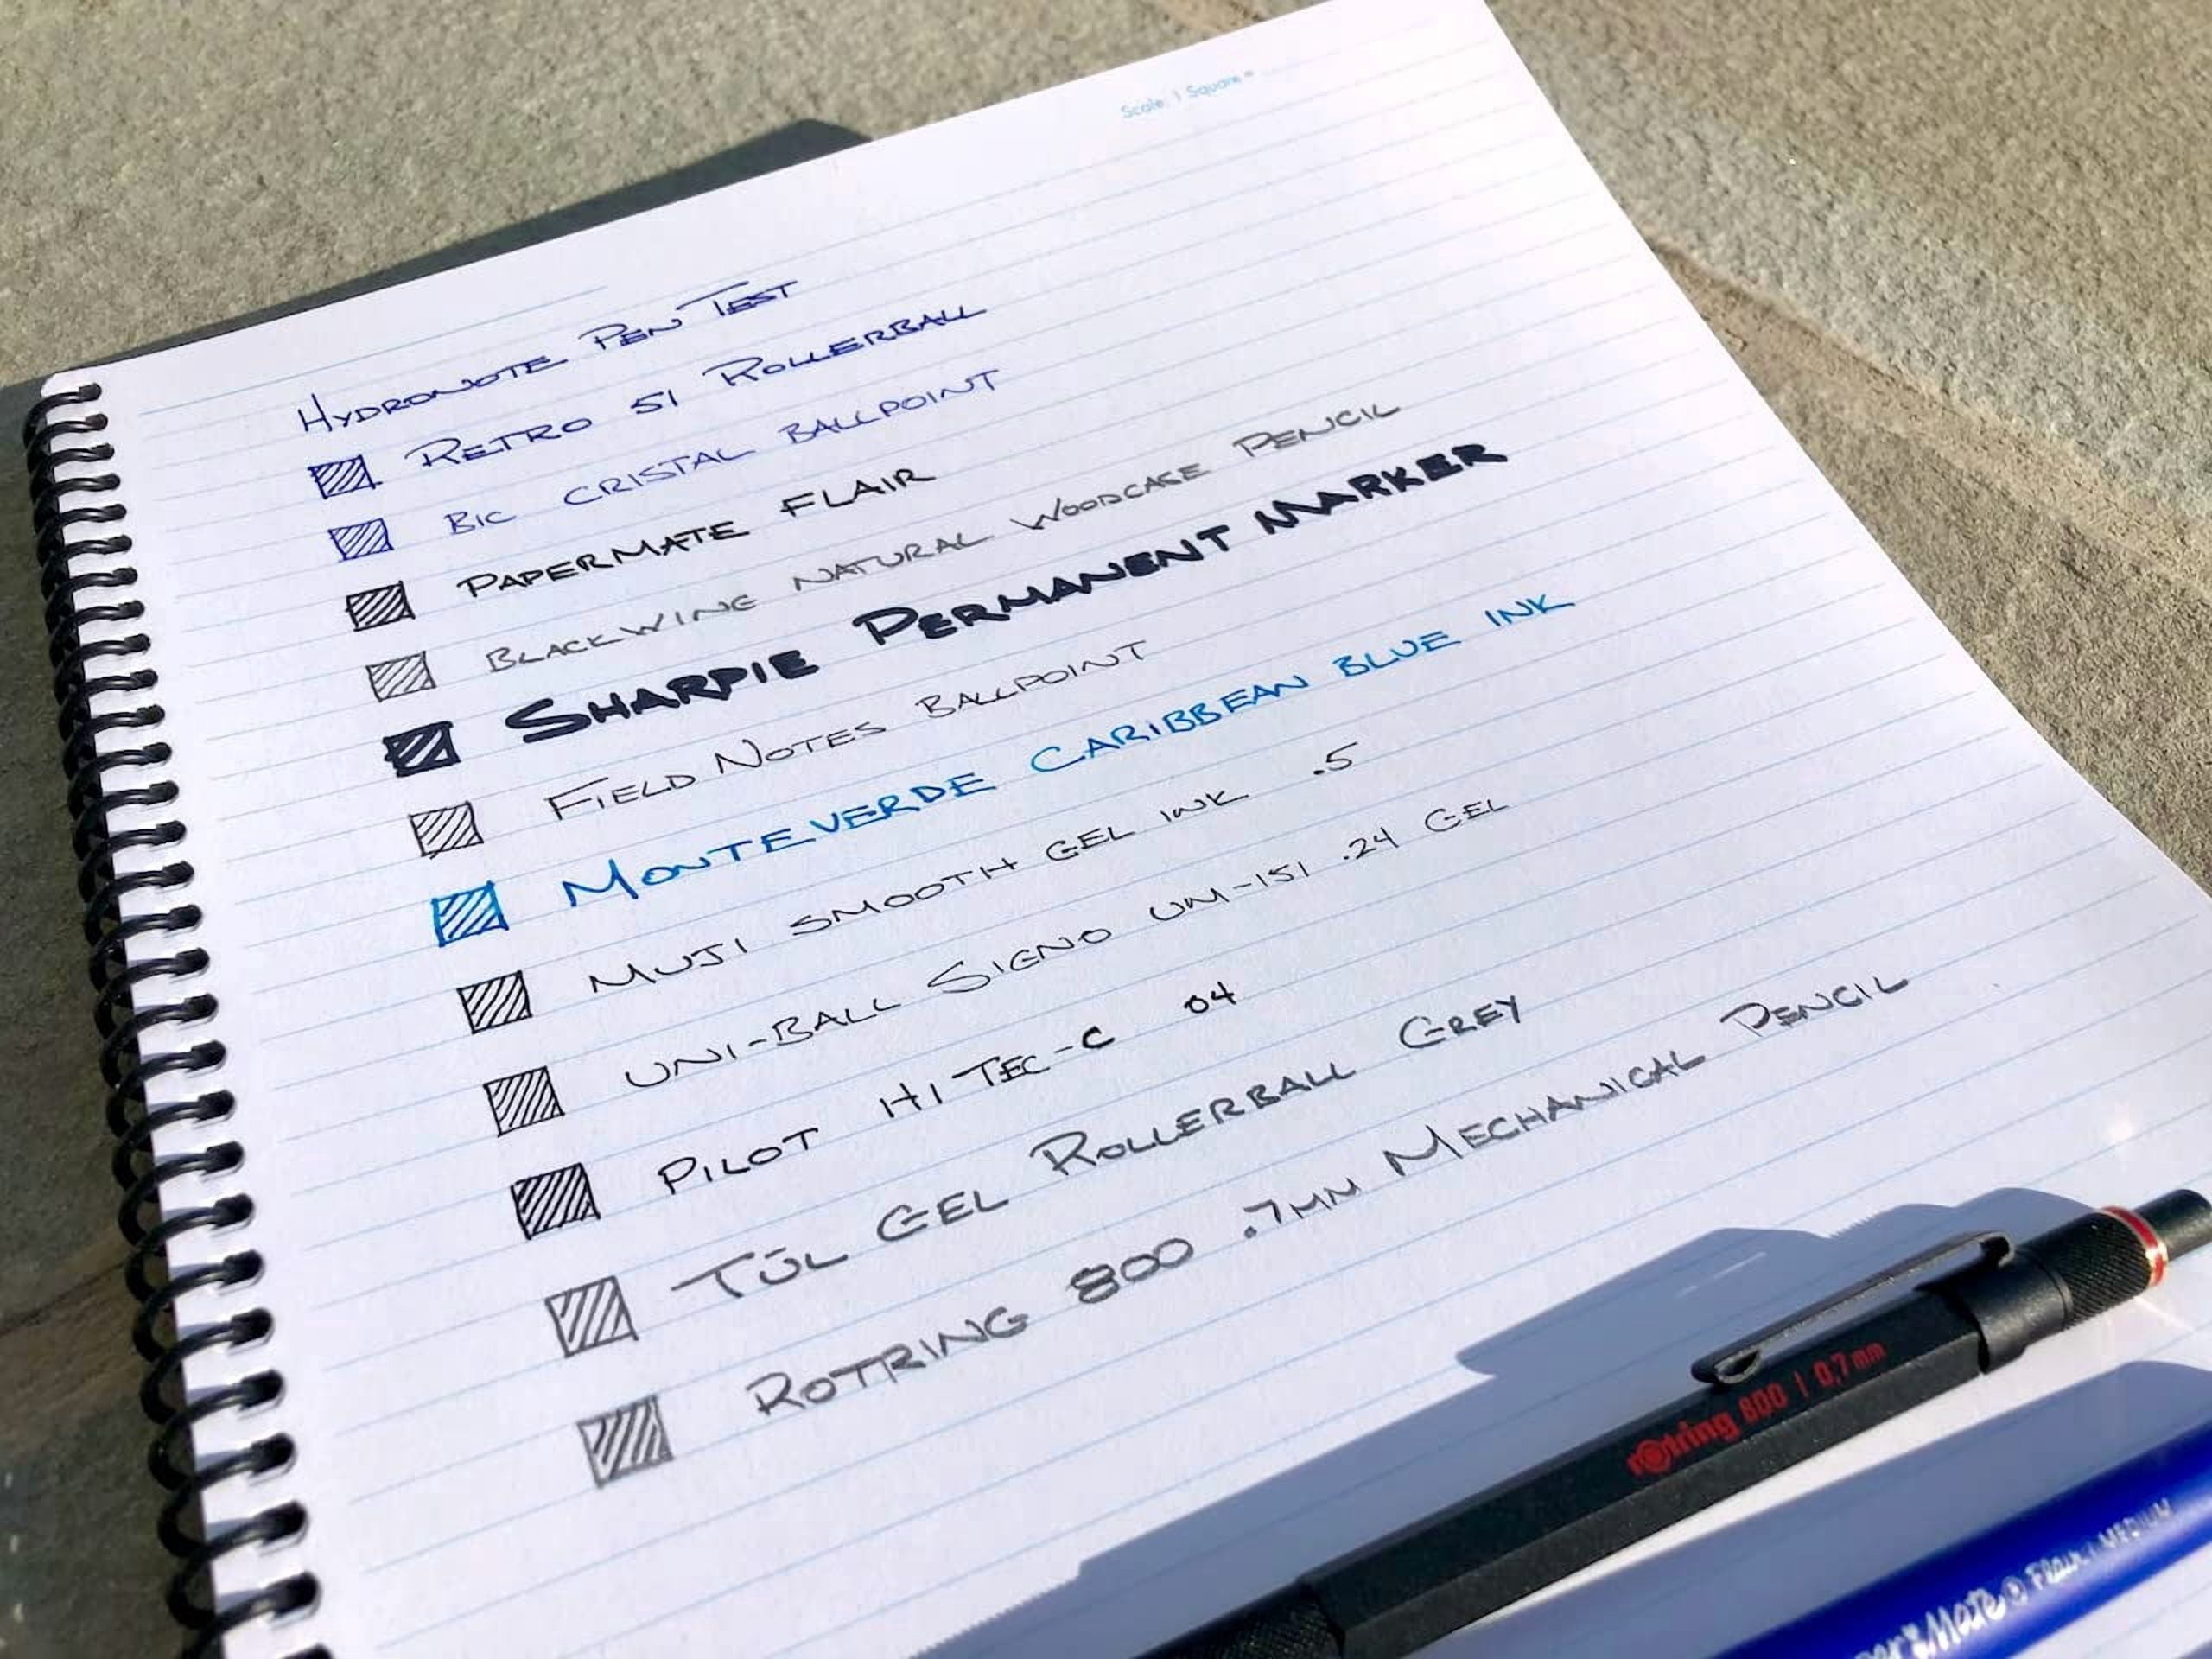 Scale 1 Square =
HYDRONOTE PEN TEST
RETRO 51 ROLLERBALL
BIC CRISTAL BALLPOINT
PAPERMATE FLAIR
BLACKWING NATURAL WOODCASE PENCIL
SHARPIE PERMANENT MARKER
FIELD NOTES BALLPOINT
MONTEVERDE CARIBBEAN BLUE INK
MUJI SMOOTH GEL INK .5
UNI-BALL SIGNO UM-151 .24 GEL
PILOT HI TEC-C 04
TŪL GEL ROLLERBALL GREY
ROTRING 800 .7MM MECHANICAL PENCIL
rotring 800 | 0,7 mm
per Mate Flair MEDIUM